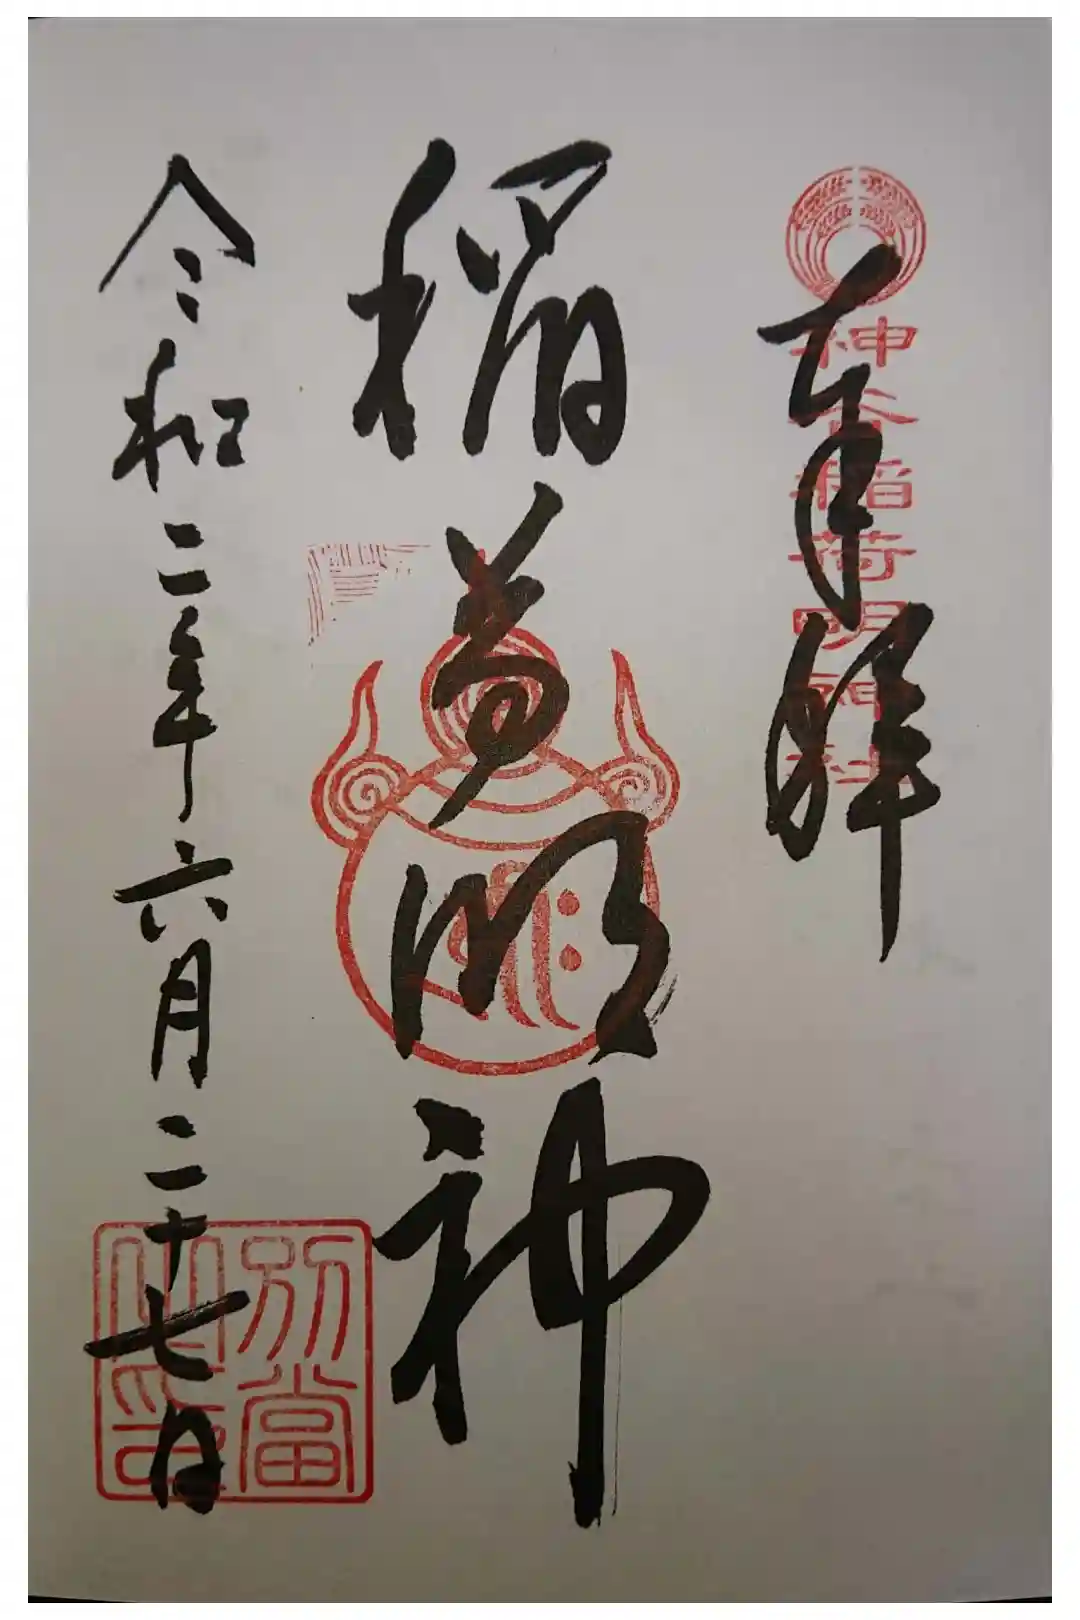 奉拝
神谷稲荷明神社
稲荷明神
令和二年六月二十七日
別當
之印